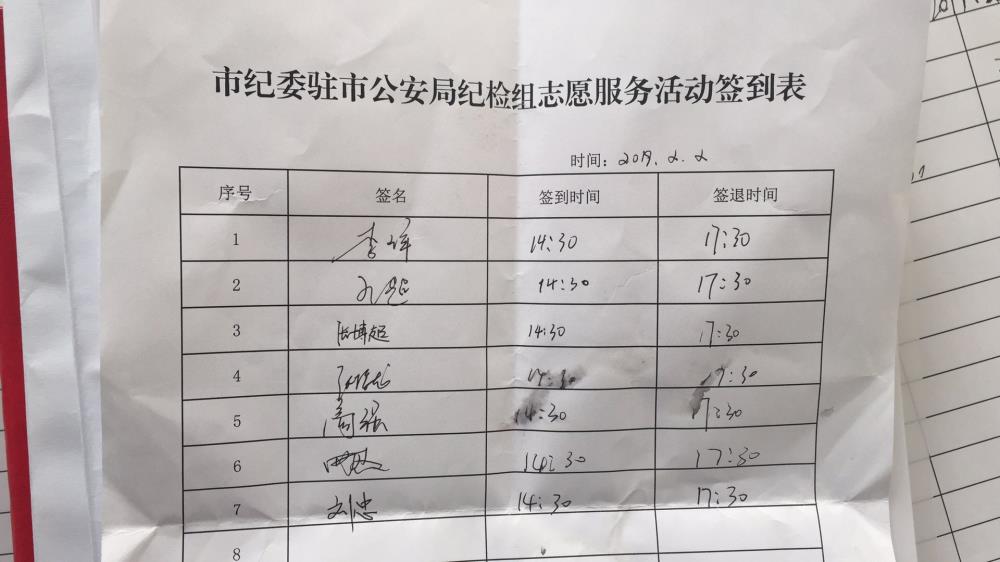 市纪委驻市公安局纪检组志愿服务活动签到表
时间：2019.2.2
序号 签名 签到时间 签退时间
1 李祥 14:30 17:30
2 14:30 17:30
3 陈博超 14:30 17:30
4 14:30 17:30
5 周强 14:30 17:30
6 14:30 17:30
7 刘忠 14:30 17:30
8